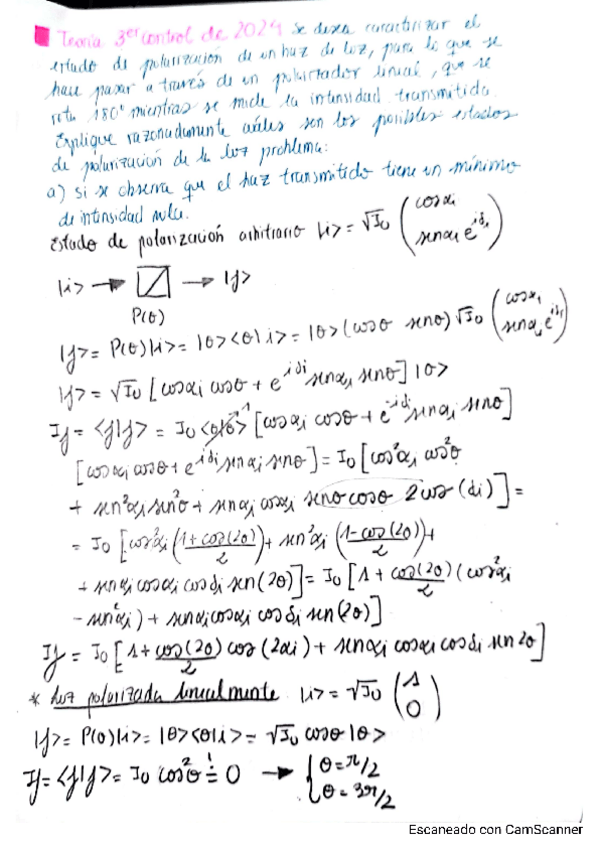 Teoría 3er control de 2024 se desea caracterizar el
estado de polarización de un haz de luz, para lo que se
hace pasar a través de un polarizador lineal, que se
rota 180° mientras se mide la intensidad transmitida
Explique razonadamente cuáles son los posibles estados
de polarización de la luz problema:
a) si se observa que el haz transmitido tiene un mínimo
de intensidad nula.
Estado de polarización arbitrario |i> = √I₀ (cosαi
senαi e^{iδi})
|i> → → |f>
P(θ)
|f> = P(θ)|i> = |θ><θ|i> = |θ>(cosθ senθ) √I₀ (cosαi
senαi e^{iδi})
|f> = √I₀ [cosαi cosθ + e^{iδi} senαi senθ] |θ>
If = <f|f> = I₀ <θ|θ>¹ [cosαi cosθ + e^{-iδi} senαi senθ]
[cosαi cosθ + e^{iδi} senαi senθ] = I₀ [cos²αi cos²θ
+ sen²αi sen²θ + senαi cosαi senθ cosθ 2cos(δi)] =
= I₀ [cos²αi (1+cos(2θ)/2) + sen²αi (1-cos(2θ)/2) +
+ senαi cosαi cosδi sen(2θ)] = I₀ [1 + cos(2θ)/2 (cos²αi
- sen²αi) + senαi cosαi cosδi sen(2θ)]
If = I₀ [1+cos(2θ)/2 cos(2αi) + senαi cosαi cosδi sen2θ]
* Luz polarizada linealmente |i> = √I₀ (1
0)
|f> = P(θ)|i> = |θ><θ|i> = √I₀ cosθ |θ>
If = <f|f> = I₀ cos²θ = 0 → { θ = π/2
θ = 3π/2
Escaneado con CamScanner